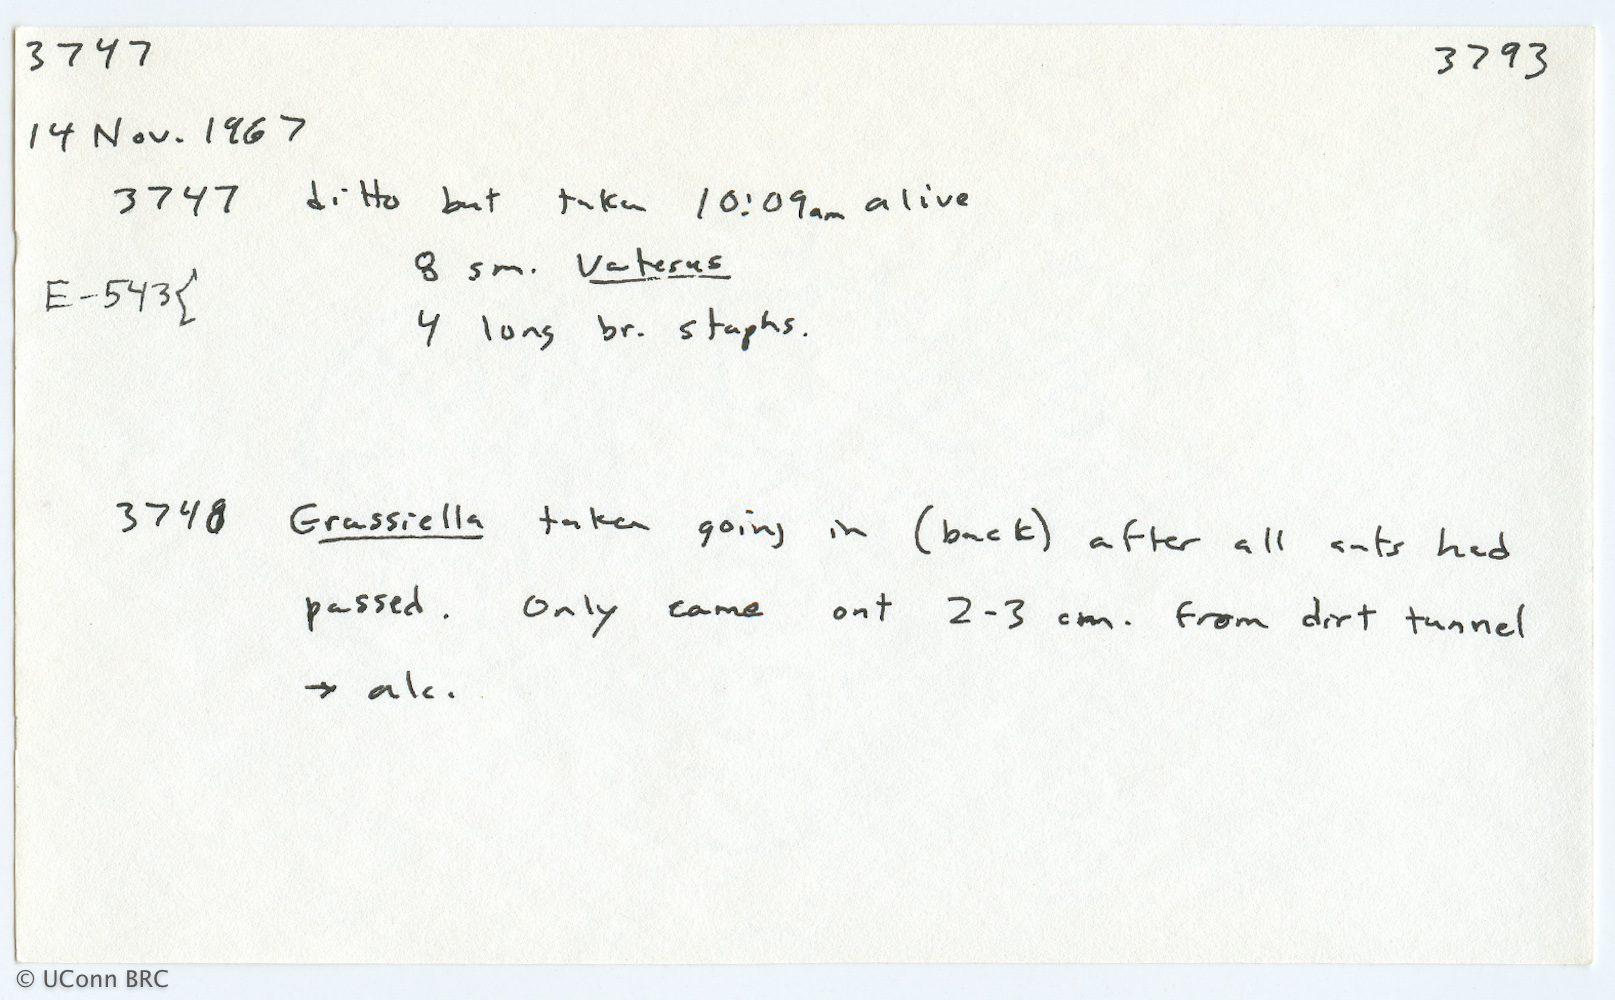 3747 3793
14 Nov. 1967
3747 ditto but taken 10:09am alive
8 sm. Vatesus
E-543{
4 long br. staphs.
3748 Grassiella taken going in (back) after all ants had
passed. Only came out 2-3 cm. from dirt tunnel
→ alc.
© UConn BRC